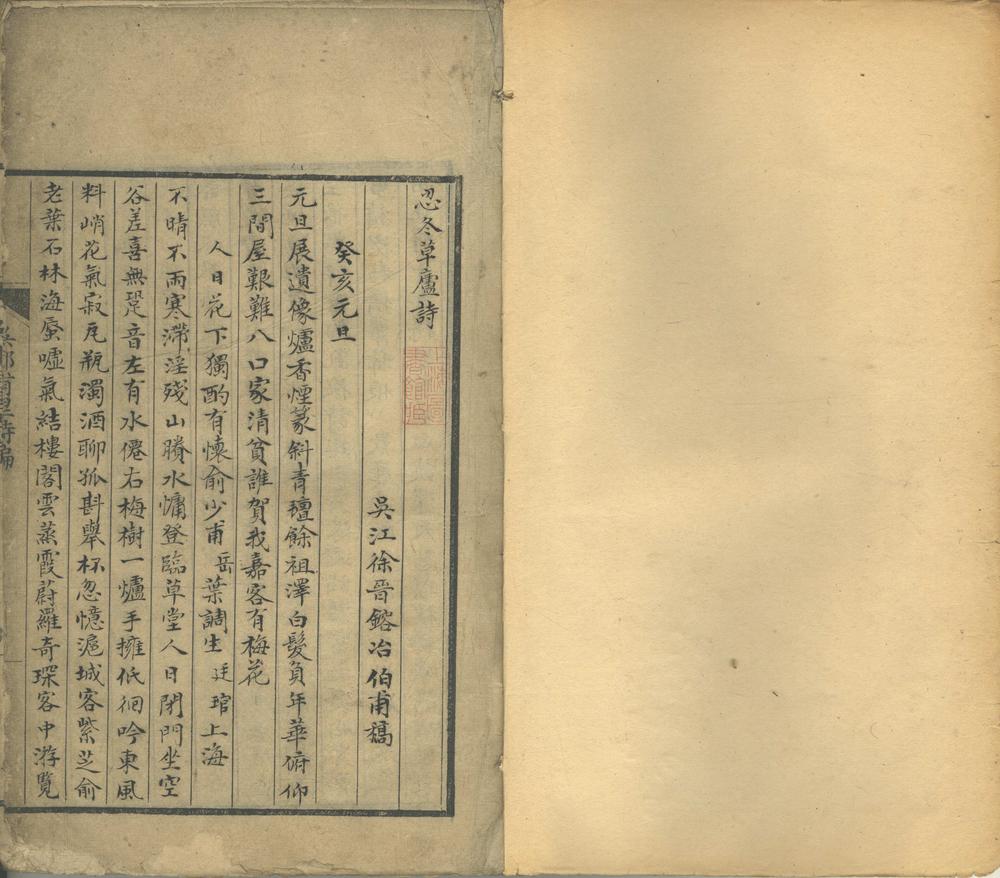 忍冬草廬詩
吳江徐晉鎔冶伯甫稿
癸亥元旦
元旦展遺像爐香煙篆斜青氊餘祖澤白髮負年華俯仰
三間屋艱難八口家清貧誰賀我嘉客有梅花
人日花下獨酌有懷俞少甫岳葉調生廷琯上海
不晴不雨寒滯淫殘山賸水慵登臨草堂人日閉門坐空
谷差喜無跫音左有水僊右梅樹一爐手擁低徊吟東風
料峭花氣寂瓦瓶濁酒聊孤斟舉杯忽憶滬城客紫芝俞
老葉石林海蜃噓氣結樓閣雲蒸霞蔚羅奇琛客中游覽